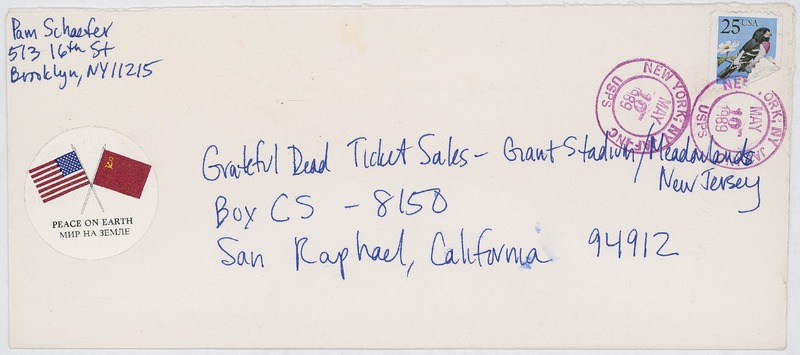 Pam Schaefer
513 16th St
Brooklyn, NY 11215
25 USA
NEW YORK, NY
MAY
10
1989
USPS
NEW YORK, NY
MAY
10
1989
USPS
Grateful Dead Ticket Sales - Giant Stadium/Meadowlands
New Jersey
Box CS - 8150
San Raphael, California 94912
PEACE ON EARTH
МИР НА ЗЕМЛЕ